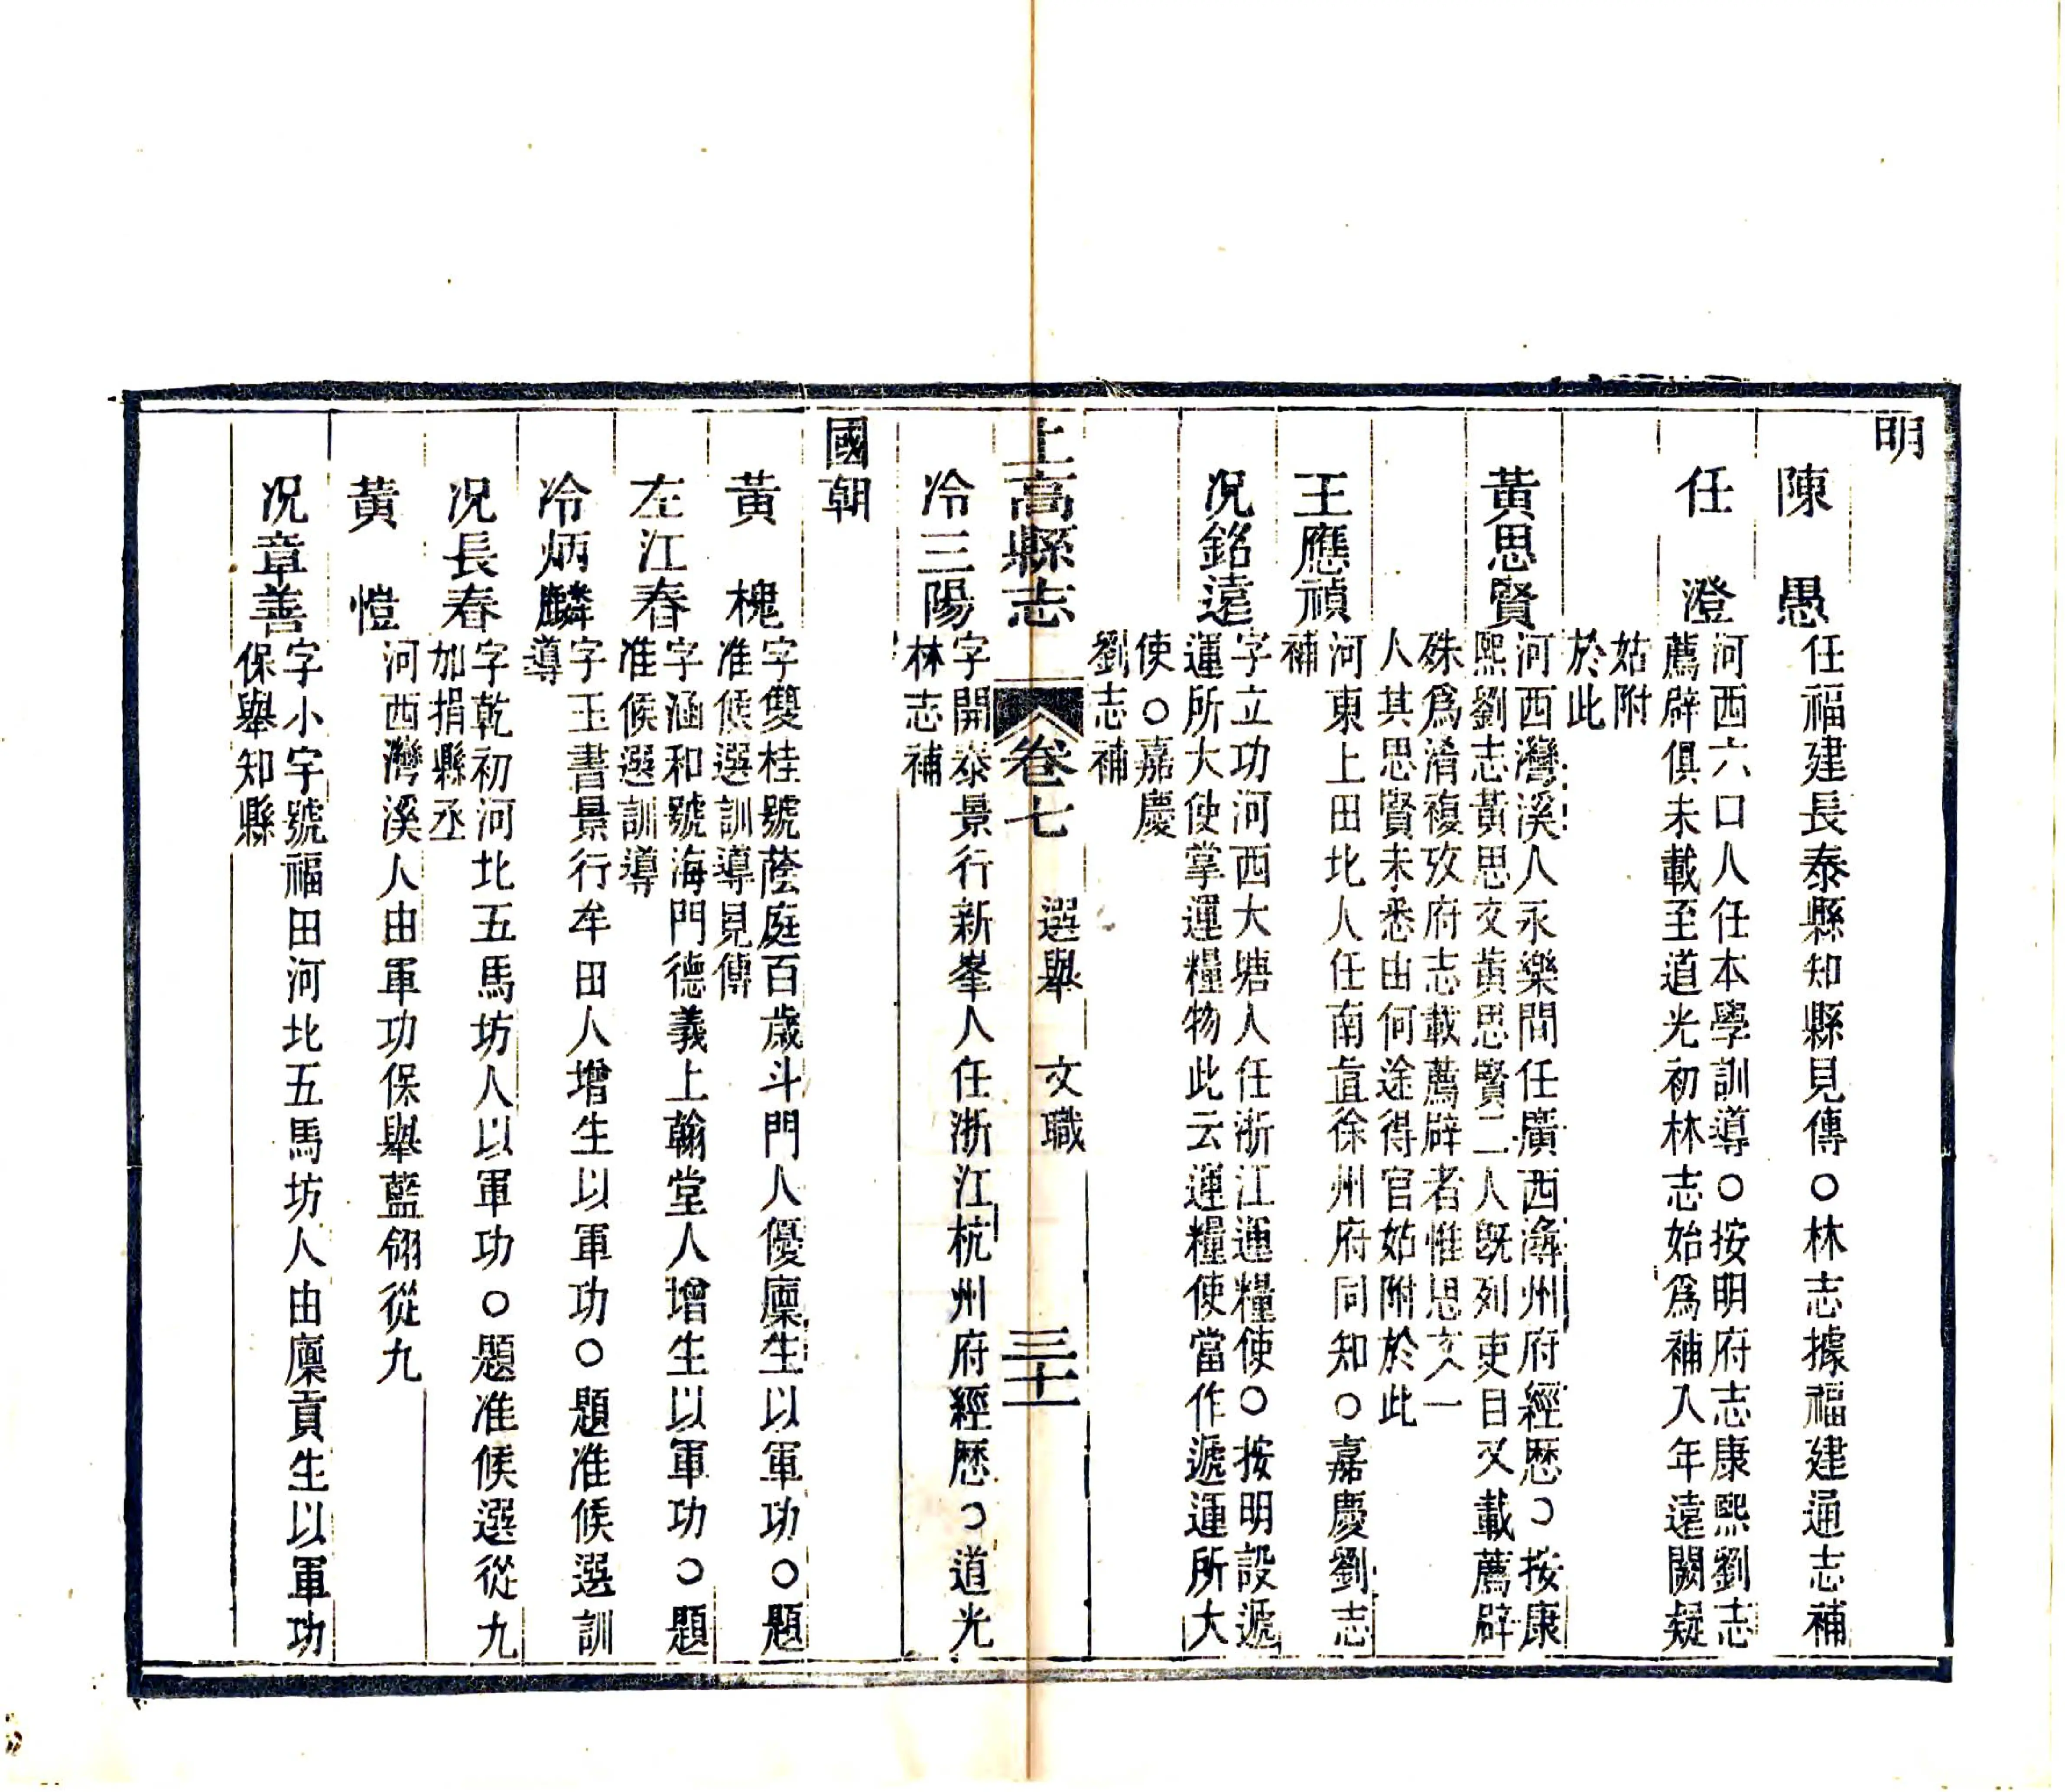 明
陳　愚
任福建長泰縣知縣見傳○林志據福建通志補
任　澄
河西六口人任本學訓導○按明府志康熙劉志
薦辟俱未載至道光初林志始爲補入年遠闕疑
姑附
於此
黃思賢
河西灣溪人永樂間任廣西潯州府經歷○按康
熙劉志黃思文黃思賢二人既列吏目又載薦辟
殊爲淆複攷府志載薦辟者惟思文一
人其思賢未悉由何途得官姑附於此
王應禎
河東上田北人任南直徐州府同知○嘉慶劉志
補
况銘遠
字立功河西大塘人任浙江運糧使○按明設遞
運所大使掌運糧物此云運糧使當作遞運所大
使○嘉慶
劉志補
上高縣志　卷七　選舉　文職　三十一
冷三陽
字開泰景行新峯人任浙江杭州府經歷○道光
林志補
國朝
黃　槐
字雙桂號蔭庭百歲斗門人優廩生以軍功○題
准候選訓導見傳
左江春
字涵和號海門德義上翰堂人增生以軍功○題
准候選訓導
冷炳麟
字玉書景行牟田人增生以軍功○題准候選訓
導
况長春
字乾初河北五馬坊人以軍功○題准候選從九
加捐縣丞
黃　愷
河西灣溪人由軍功保舉藍翎從九
况章善
字小宇號福田河北五馬坊人由廩貢生以軍功
保舉知縣